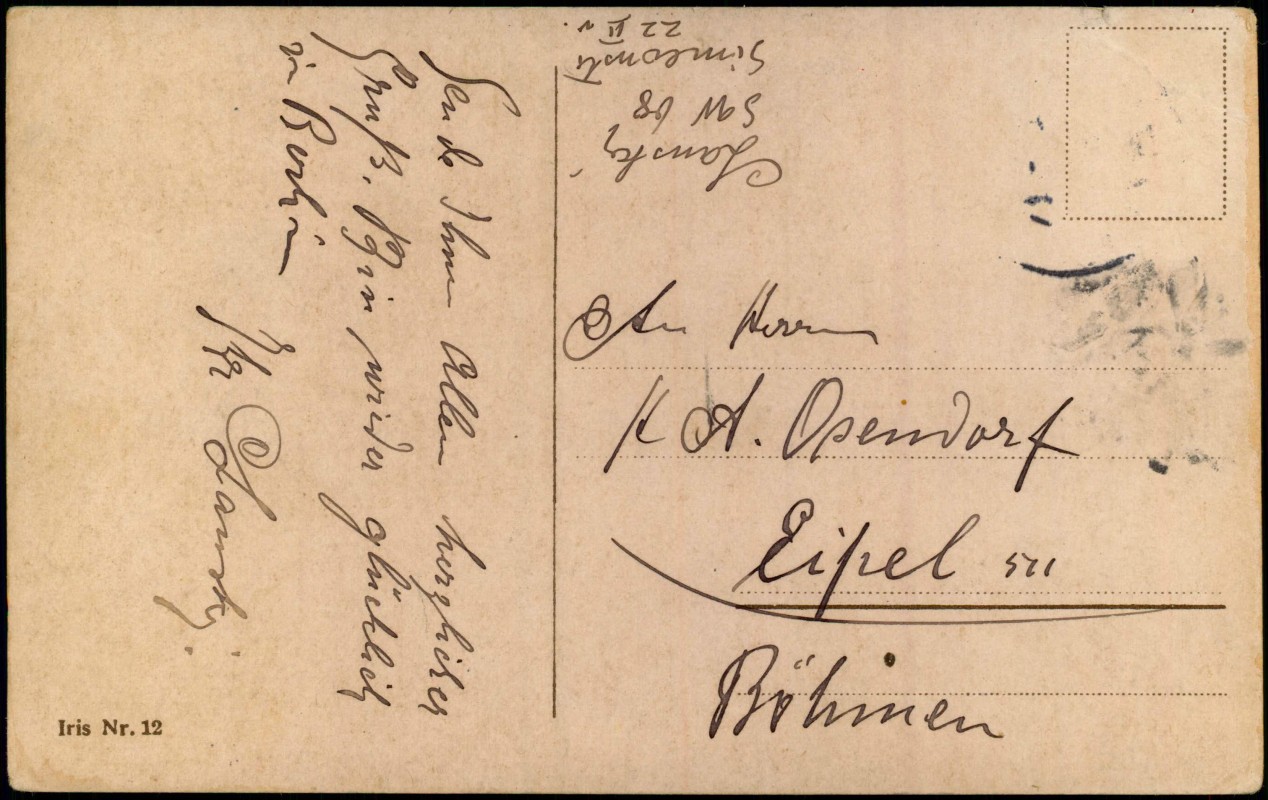 Sende Ihnen Allen herzlichen
Gruß. Bin wieder glücklich
in Berlin
Ihr Lansky.
Lansky
SW 68
Simeonstr
22 II v.
An Herrn
K A. Osendorf
Eipel 511
Böhmen
Iris Nr. 12